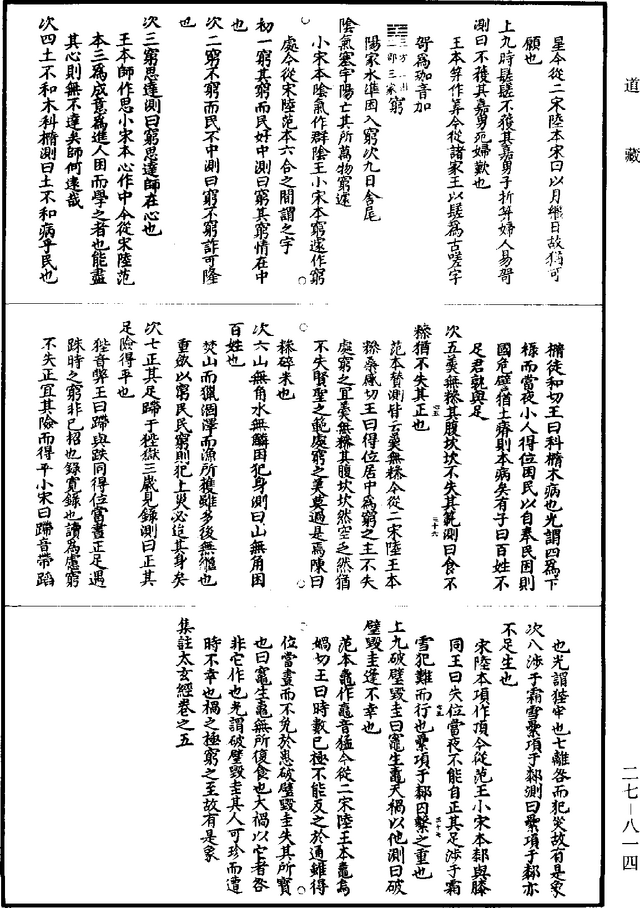 道藏
星今從二宋陸本宋曰以月繼日故猶可
願也
上九時䰈䰈不獲其嘉男子折笄婦人易哿
測曰不獲其嘉男死婦歎也
王本笄作算今從諸家王以䰈為古嗟字
哿為珈音加
三方一州一部三家窮
陽家水準困入窮次九日舍尾
陰氣塞宇陽亡其所萬物窮遽
小宋本陰氣作群陰王小宋本窮遽作窮
處今從宋陸范本六合之間謂之宇
初一窮其窮而民好中測曰窮其窮情在中
也
次二窮不窮而民不中測曰窮不窮詐可隆
也
次三窮思達測曰窮思達師在心也
王本師作思小宋本心作中今從宋陸范
本三為成意為進人困而學之者也能盡
其心則無不達矣師何遠哉
次四土不和木科橢測曰土不和病乎民也
橢徒和切王曰科橢木病也光謂四為下
祿而當夜小人得位困民以自奉民困則
國危譬猶土瘠則木病矣有子曰百姓不
足君孰與足
次五羹無糝其腹坎坎不失其範測曰食不
糝猶不失其正也
范本贊測皆云羹無糝今從二宋陸王本
糝桑感切王曰得位居中為窮之主不失
處窮之宜羹無糝其腹坎坎然空乏然猶
不失賢聖之範處窮之美莫過是焉陳曰
糝碎米也
次六山無角水無鱗困犯身測曰山無角困
百姓也
焚山而獵涸澤而漁所獲雖多後無繼也
重斂以窮民民窮則犯上災必迨其身矣
次七正其足蹛于狴獄三歲見錄測曰正其
足險得平也
狴音弊王曰蹛與跌同得位當晝正足遇
跌時之窮非已招也錄寬錄也讀為慮窮
不失正宜其險而得平小宋曰蹛音帶蹈
也光謂狴牢也七離咎而犯災故有是象
次八涉于霜雪纍項于郄測曰纍項于郄亦
不足生也
宋陸本項作頂今從范王小宋本郄與膝
同王曰失位當夜不能自正其足涉于霜
雪犯難而行也纍項于郄囚繫之重也
上九破璧毀圭曰竈生鼃天禍以他測曰破
璧毀圭逢不幸也
范本鼃作黽音猛今從二宋陸王本鼃烏
媧切王曰時數已極不能反之於通雖得
位當晝而不免於患破璧毀圭失其所寶
也曰竈生鼃無所復食也大禍以它者咎
非它作也光謂破璧毀圭其人可珍而遭
時不幸也禍之極窮之至故有是象
集註太玄經卷之五
二七—八一四